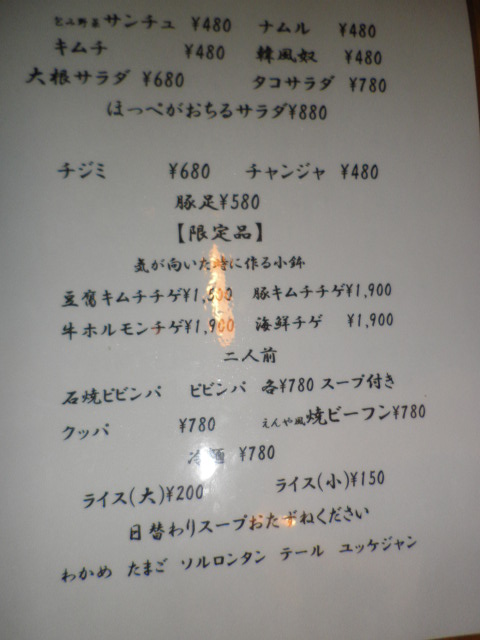 包み野菜サンチュ ¥480 ナムル ¥480
キムチ ¥480 韓風奴 ¥480
大根サラダ ¥680 タコサラダ ¥780
ほっぺがおちるサラダ¥880
チジミ ¥680 チャンジャ ¥480
豚足¥580
【限定品】
気が向いた時に作る小鉢
豆腐キムチチゲ 豚キムチチゲ¥1,900
牛ホルモンチゲ¥1,900 海鮮チゲ ¥1,900
二人前
石焼ビビンバ ビビンバ 各¥780 スープ付き
クッパ ¥780 えんや風焼ビーフン¥780
冷麺 ¥780
ライス(大)¥200 ライス(小)¥150
日替わりスープおたずねください
わかめ たまご ソルロンタン テール ユッケジャン